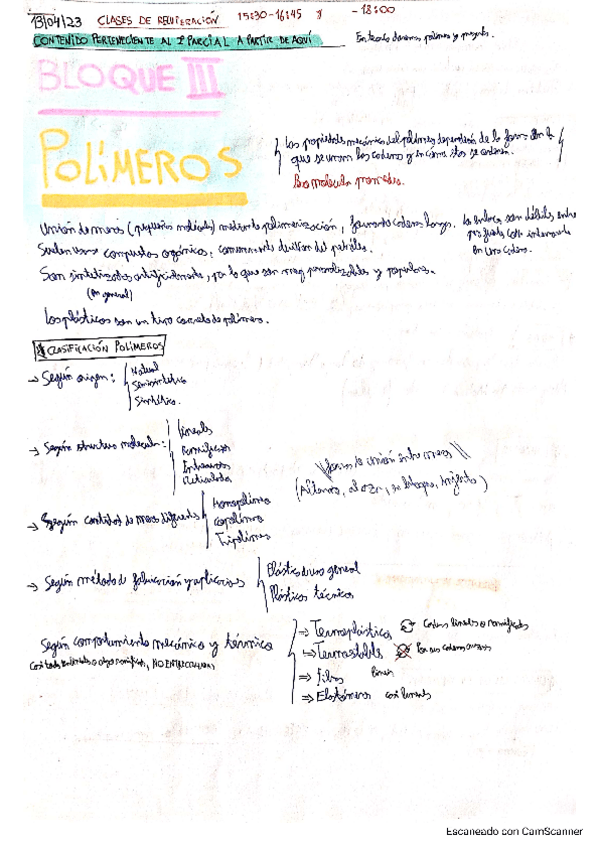 13/04/23 CLASES DE RECUPERACIÓN 15:30-16:45 y - 18:00
CONTENIDO PERTENECIENTE AL 2º PARCIAL A PARTIR DE AQUÍ
En teoría daremos polímeros y
BLOQUE III
POLÍMEROS
Las propiedades mecánicas del polímero dependerán de la forma en la
que se unan las cadenas y en cómo éstas se ordenen.
Unión de meros (pequeñas moléculas) mediante polimerización, formando cadenas largas.
Los enlaces son débiles entre
en una cadena.
Suelen usarse compuestos orgánicos, comúnmente derivados del petróleo.
Son sintetizados artificialmente, por lo que son muy personalizables y populares.
(en general)
Los plásticos son un tipo concreto de polímero.
CLASIFICACIÓN POLÍMEROS
→ Según origen:
Natural
Semisintético
Sintético.
→ Según estructura molecular:
Lineales
Ramificados
Entrecruzados
Reticulados
forma de unión entre meros
(Alterno, al azar, en bloques, injerto)
→ Según cantidad de meros diferentes
Homopolímero
Copolímero
Tripolímero
→ Según método de fabricación y aplicaciones
Plásticos de uso general
Plásticos técnicos
Según comportamiento mecánico y térmico
NO ENTRECRUZADAS
⇒ Termoplásticos Cadenas lineales o ramificadas
⇒ Termoestables
⇒ Fibras lineales
⇒ Elastómeros casi lineales
Escaneado con CamScanner